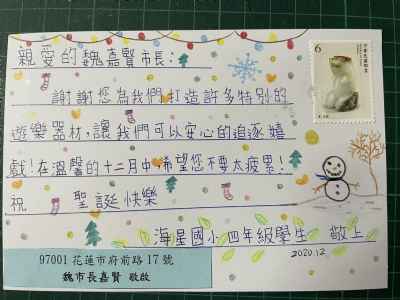 親愛的魏嘉賢市長:
謝謝您為我們打造許多特別的
遊樂器材,讓我們可以安心的追逐嬉
戲!在溫馨的十二月中,希望您不要太疲累!
祝 聖誕快樂
海星國小四年級學生 敬上
2020.12
6
中華民國郵票
97001 花蓮市府前路 17 號
魏市長嘉賢 敬啟